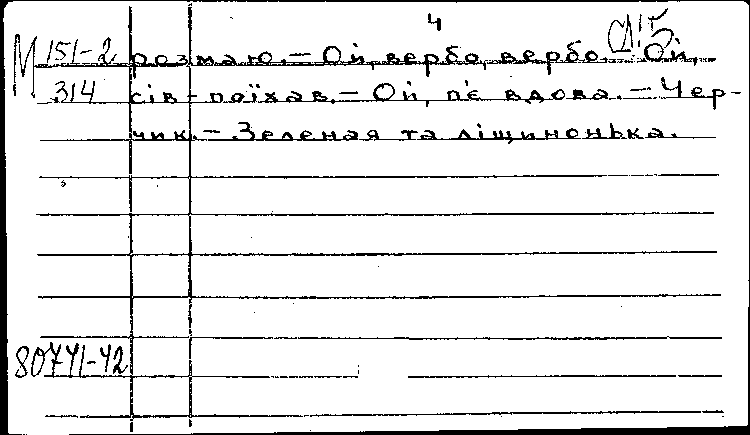 4
М 151-2 розмаю.— Ой, вербо, вербо.— Ой,
314 сів-поїхав.— Ой, п'є вдова.— Чер-
чик.— Зеленая та ліщинонька.
80741-42